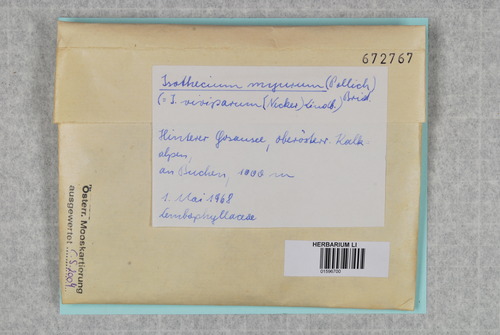 672767
Isothecium myurum (Pollich) Brid.
(= I. viviparum (Necker) Lindb.)
Hinterer Gosausee, oberösterr. Kalk-
alpen,
an Buchen, 1000 m
1. Mai 1968
Lembophyllaceae
HERBARIUM LI
01596700
Österr. Mooskartierung
ausgewertet